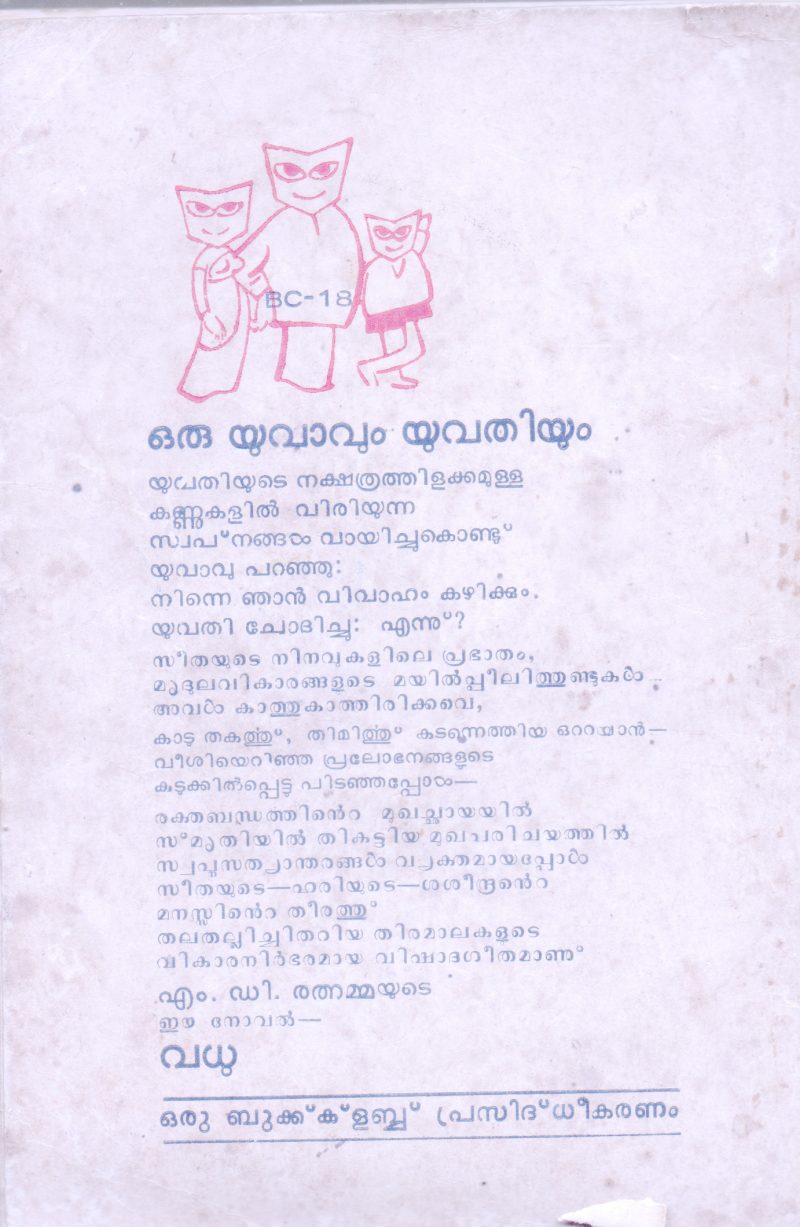 BC-18
ഒരു യുവാവും യുവതിയും
യുവതിയുടെ നക്ഷത്രത്തിളക്കമുള്ള
കണ്ണുകളിൽ വിരിയുന്ന
സ്വപ്നങ്ങൾ വായിച്ചുകൊണ്ടു്
യുവാവു പറഞ്ഞു:
നിന്നെ ഞാൻ വിവാഹം കഴിക്കും.
യുവതി ചോദിച്ചു: എന്നു്?
സീതയുടെ നിനവുകളിലെ പ്രഭാതം,
മൃദുലവികാരങ്ങളുടെ മയിൽപ്പീലിത്തുണ്ടുകൾ...
അവൾ കാത്തുകാത്തിരിക്കവെ,
കാടു തകർത്തു്, തിമിർത്തു് കടന്നെത്തിയ ഒററയാൻ—
വീശിയെറിഞ്ഞ പ്രലോഭനങ്ങളുടെ
കുടുക്കിൽപ്പെട്ടു പിടഞ്ഞപ്പോൾ—
രക്തബന്ധത്തിൻെറ മുഖച്ഛായയിൽ
സ്മൃതിയിൽ തികട്ടിയ മുഖപരിചയത്തിൽ
സ്വപ്നസത്യാന്തരങ്ങൾ വ്യക്തമായപ്പോൾ
സീതയുടെ—ഹരിയുടെ—ശശീന്ദ്രൻെറ
മനസ്സിൻെറ തീരത്തു്
തലതല്ലിച്ചിതറിയ തിരമാലകളുടെ
വികാരനിർഭരമായ വിഷാദഗീതമാണു്
എം. ഡി. രത്നമ്മയുടെ
ഈ നോവൽ—
വധു
ഒരു ബുക്ക്ക്ളബ്ബ് പ്രസിദ്ധീകരണം